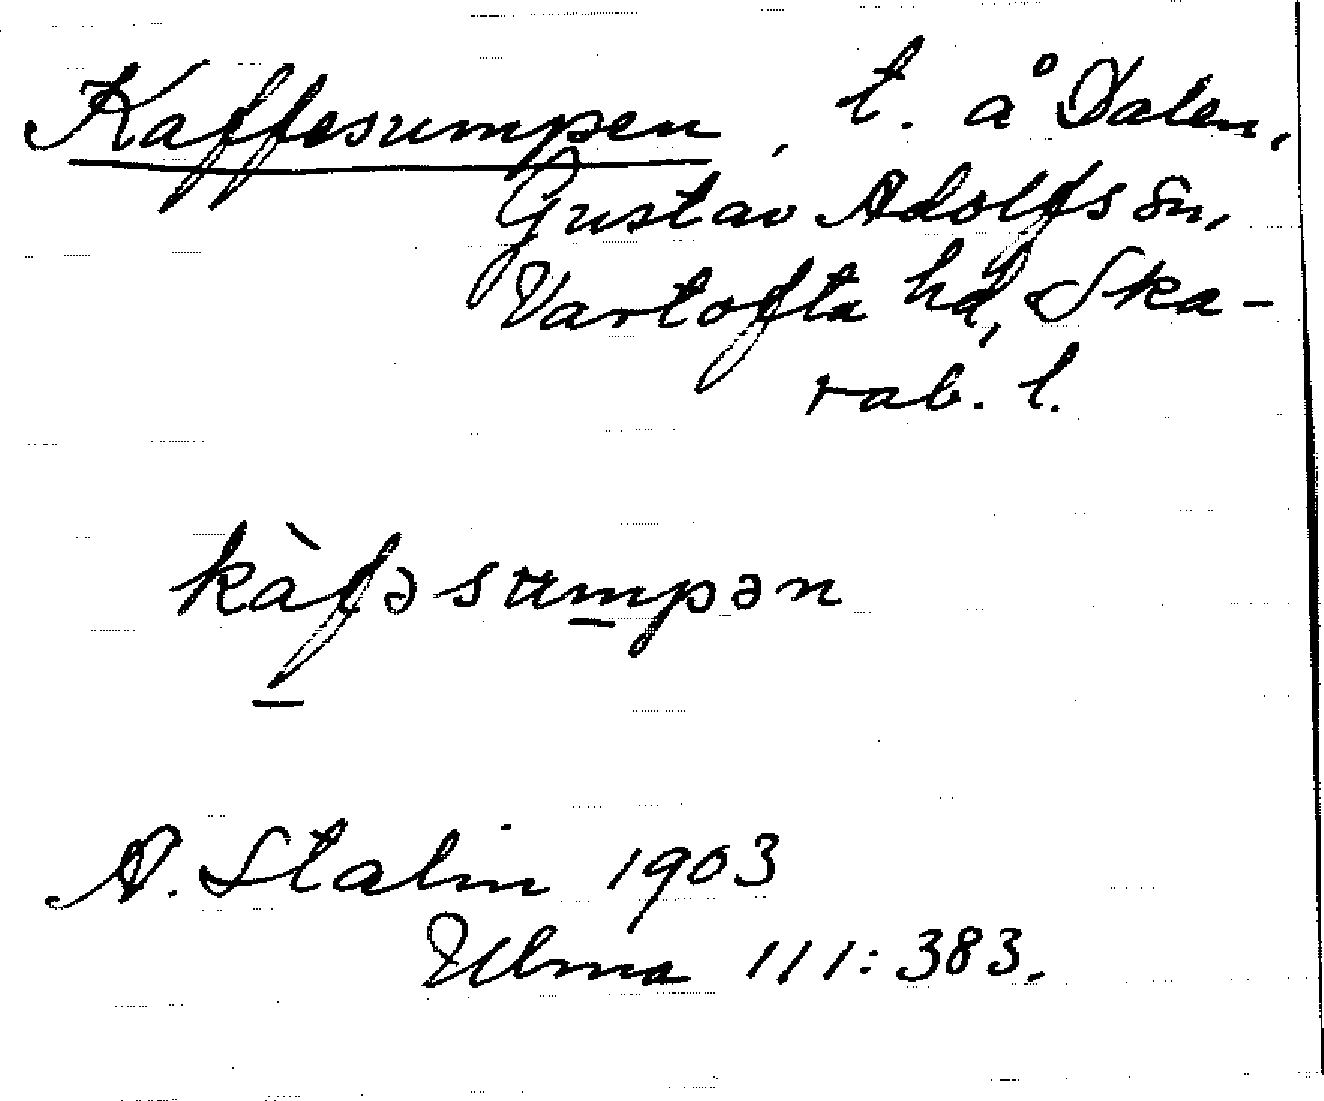 Kaffesumpen, t. å Dalen,
Gustav Adolfs sn,
Vartofta hd, Ska-
rab. l.
kàfəsumpən
A. Stalin 1903
Ulma 111:383.